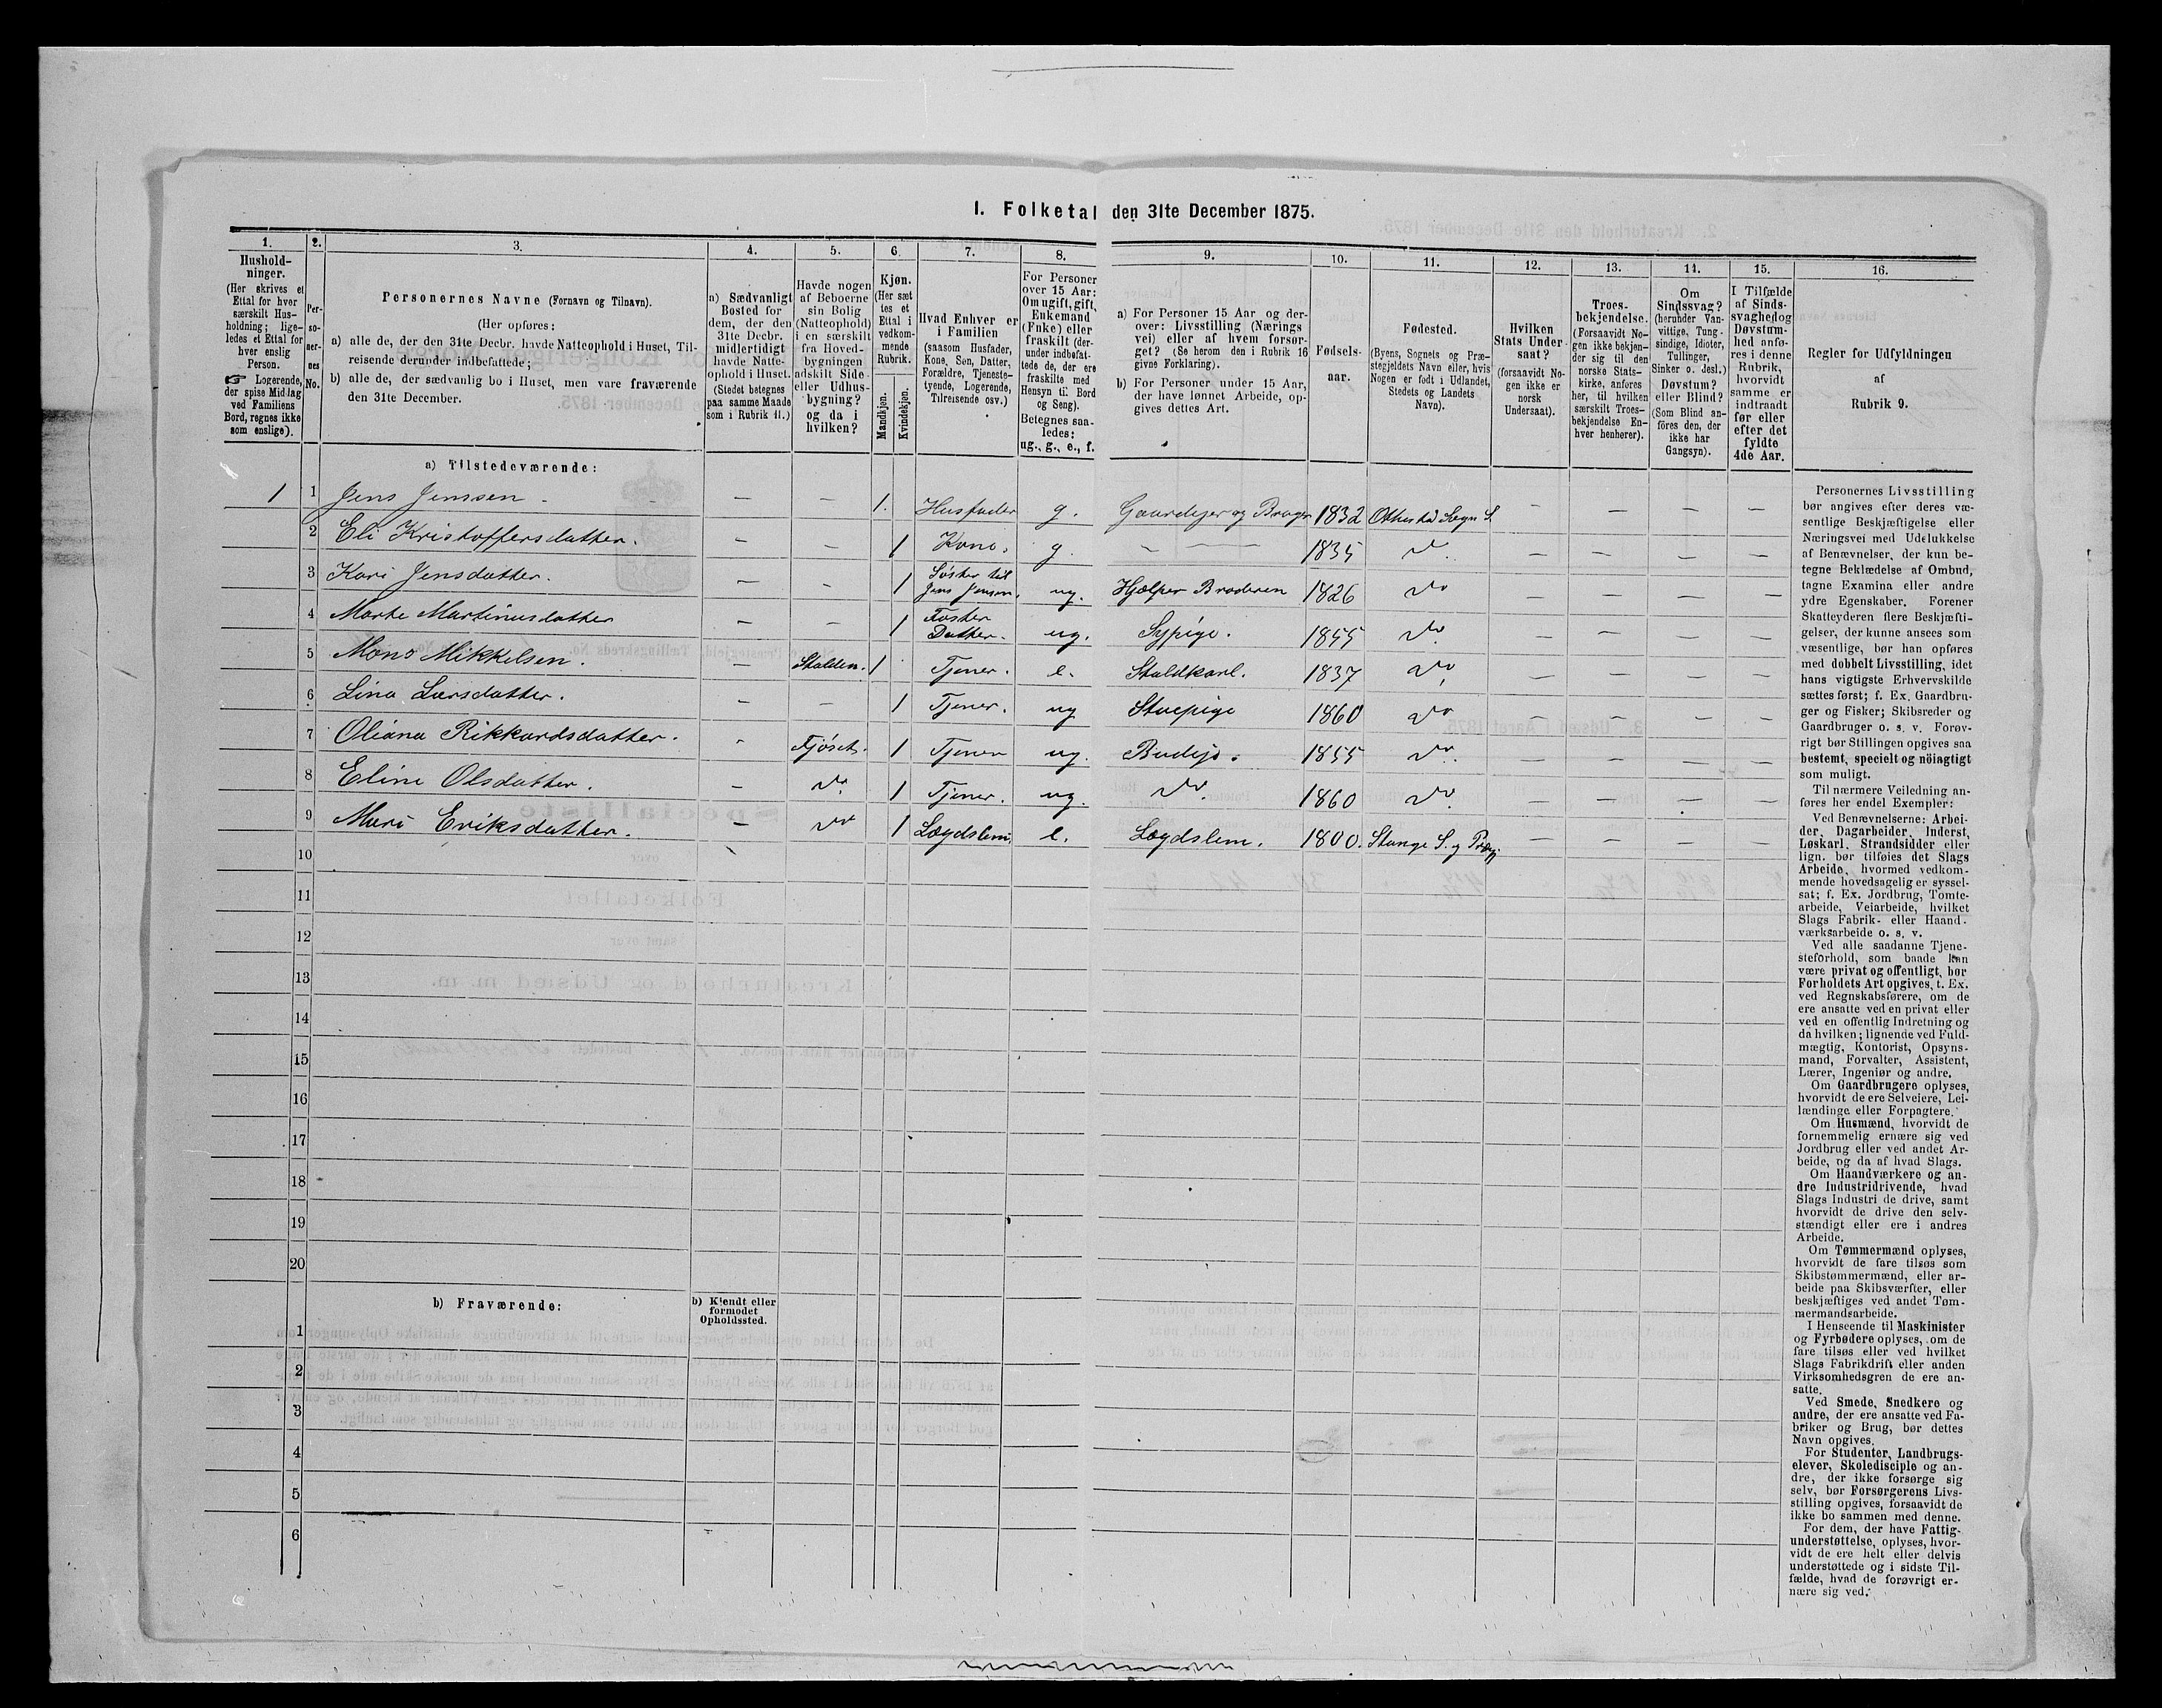 1. Folketal den 31te December 1875.
1.
Hushold-
ninger.
(Her skrives et
Ettal for hver
særskilt Hus-
holdning; lige-
ledes et Ettal for
hver enslig
Person.
☞ Logerende,
der spise Middag
ved Familiens
Bord, regnes ikke
som enslige).
2.
Per-
so-
ner-
nes
No.
3.
Personernes Navne (Fornavn og Tilnavn).
(Her opføres:
a) alle de, der den 31te Decbr. havde Natteophold i Huset, Til-
reisende derunder indbefattede;
b) alle de, der sædvanlig bo i Huset, men vare fraværende
den 31te December.
4.
a) Sædvanligt
Bosted for
dem, der den
31te Decbr.
midlertidigt
havde Natte-
ophold i Huset.
(Stedet betegnes
paa samme Maade
som i Rubrik 11.)
5.
Havde nogen
af Beboerne
sin Bolig
(Natteophold)
i en særskilt
fra Hoved-
bygningen
adskilt Side-
eller Udhus-
bygning?
og da i
hvilken?
6.
Kjøn.
(Her sæt
tes et
Ettal i
vedkom-
mende
Rubrik.
Mandkjøn.
Kvindekjøn.
7.
Hvad Enhver er
i Familien
(saasom Husfader,
Kone, Søn, Datter,
Forældre, Tjeneste-
tyende, Logerende,
Tilreisende osv.)
8.
For Personer
over 15 Aar:
Om ugift, gift,
Enkemand
(Enke) eller
fraskilt (der-
under indbefat-
tede de, der ere
fraskilte med
Hensyn til Bord
og Seng).
Betegnes saa-
ledes:
ug., g., e., f.
9.
a) For Personer 15 Aar og der-
over: Livsstilling (Nærings
vei) eller af hvem forsør-
get? (Se herom den i Rubrik 16
givne Forklaring).
b) For Personer under 15 Aar,
der have lønnet Arbeide, op-
gives dettes Art.
10.
Fødsels-
aar.
11.
Fødested.
(Byens, Sognets og Præ-
stegjeldets Navn eller, hvis
Nogen er født i Udlandet,
Stedets og Landets
Navn).
12.
Hvilken
Stats Under
saat?
(forsaavidt No-
gen ikke er
norsk
Undersaat).
13.
Troes-
bekjendelse.
(Forsaavidt No-
gen ikke bekjen-
der sig til den
norske Stats-
kirke, anføres
her, til hvilken
særskilt Troes-
bekjendelse En-
hver henhører).
14.
Om
Sindssvag?
(herunder Van-
vittige, Tung-
sindige, Idioter,
Tullinger,
Sinker o. desl.)
Døvstum?
eller Blind?
(Som Blind an-
føres den, der
ikke har
Gangsyn).
15.
I Tilfælde
af Sinds-
svaghed og
Døvstum-
hed anfø-
res i denne
Rubrik,
hvorvidt
samme er
indtraadt
før eller
efter det
fyldte
4de Aar.
16.
Regler for Udfyldningen
af
Rubrik 9.
a) Tilstedeværende:
1 1 Jens Jensen - — — 1. Husfader g. Gaardejer og Bruger 1832 Ottestad Sogn S. — — — —
2 Eli Kristoffersdatter. — — 1 Kone. g. — — 1835 do. — — — —
3 Kari Jensdatter. — — 1 Søster til Jens Jensen. ug. Hjælper Broderen 1826 do — — — —
4 Marte Martinusdatter — — 1 Foster Datter. ug. Sypige. 1855 do. — — — —
5 Mons Mikkelsen. — Stalden. 1 Tjener. e. Staldkarl. 1837 do — — — —
6 Lina Larsdatter. — — 1 Tjener. ug Stuepige 1860 do — — — —
7 Oliana Rikkardsdatter. - Fjøset. 1 Tjener ug. Budeje. 1855 do. — — — —
8 Eline Olsdatter. — do. 1 Tjener. ug. do. 1860 do. — — — —
9 Mari Eriksdatter. — do 1 Lægdslem. e. Lægdslem. 1800. Stange S. og Præg. — — —
10
11
12
13
14
15
16
17
18
19
20
b) Fraværende:
b) Kjendt eller
formodet
Opholdssted.
1
2
3
4
5
6
Personernes Livsstilling
bør angives efter deres væ-
sentlige Beskjæftigelse eller
Næringsvei med Udelukkelse
af Benævnelser, der kun be-
tegne Beklædelse af Ombud,
tagne Examina eller andre
ydre Egenskaber. Forener
Skatteyderen flere Beskjæfti-
gelser, der kunne ansees som
væsentlige, bør han opføres
med dobbelt Livsstilling, idet
hans vigtigste Erhvervskilde
sættes først; f. Ex. Gaardbru-
ger og Fisker; Skibsreder og
Gaardbruger o. s. v. Forøv-
rigt bør Stillingen opgives saa
bestemt, specielt og nöiagtigt
som muligt.
Til nærmere Veiledning an-
føres her endel Exempler:
Ved Benævnelserne: Arbei-
der, Dagarbeider, Inderst,
Løskarl, Strandsidder eller
lign. bør tilføies det Slags
Arbeide, hvormed vedkom-
mende hovedsagelig er syssel-
sat; f. Ex. Jordbrug, Tomte-
arbeide, Veiarbeide, hvilket
Slags Fabrik- eller Haand-
værksarbeide o. s. v.
Ved alle saadanne Tjene-
steforhold, som baade kan
være privat og offentligt, bør
Forholdets Art opgives, t. Ex.
ved Regnskabsførere, om de
ere ansatte ved en privat eller
ved en offentlig Indretning og
da hvilken; lignende ved Fuld-
mægtig, Kontorist, Opsyns-
mand, Forvalter, Assistent,
Lærer, Ingeniør og andre.
Om Gaardbrugere oplyses,
hvorvidt de ere Selveiere, Lei-
lændinge eller Forpagtere.
Om Husmænd, hvorvidt de
fornemmelig ernære sig ved
Jordbrug eller ved andet Ar-
beide, og da af hvad Slags.
Om Haandværkere og an-
dre Industridrivende, hvad
Slags Industri de drive, samt
hvorvidt de drive den selv-
stændigt eller ere i andres
Arbeide.
Om Tømmermænd oplyses,
hvorvidt de fare tilsøs som
Skibstømmermænd, eller ar-
beide paa Skibsværfter, eller
beskjæftiges ved andet Tøm-
mermandsarbeide.
I Henseende til Maskinister
og Fyrbødere oplyses, om de
fare tilsøs eller ved hvilket
Slags Fabrikdrift eller anden
Virksomhedsgren de ere an-
satte.
Ved Smede, Snedkere og
andre, der ere ansatte ved Fa-
briker og Brug, bør dettes
Navn opgives.
For Studenter, Landbrugs-
elever, Skoledisciple og an-
dre, der ikke forsørge sig
selv, bør Forsørgerens Livs-
stilling opgives, forsaavidt de
ikke bo sammen med denne.
For dem, der have Fattig-
understøttelse, oplyses, hvor-
vidt de ere helt eller delvis
understøttede og i sidste Til-
fælde, hvad de forøvrigt er-
nære sig ved.